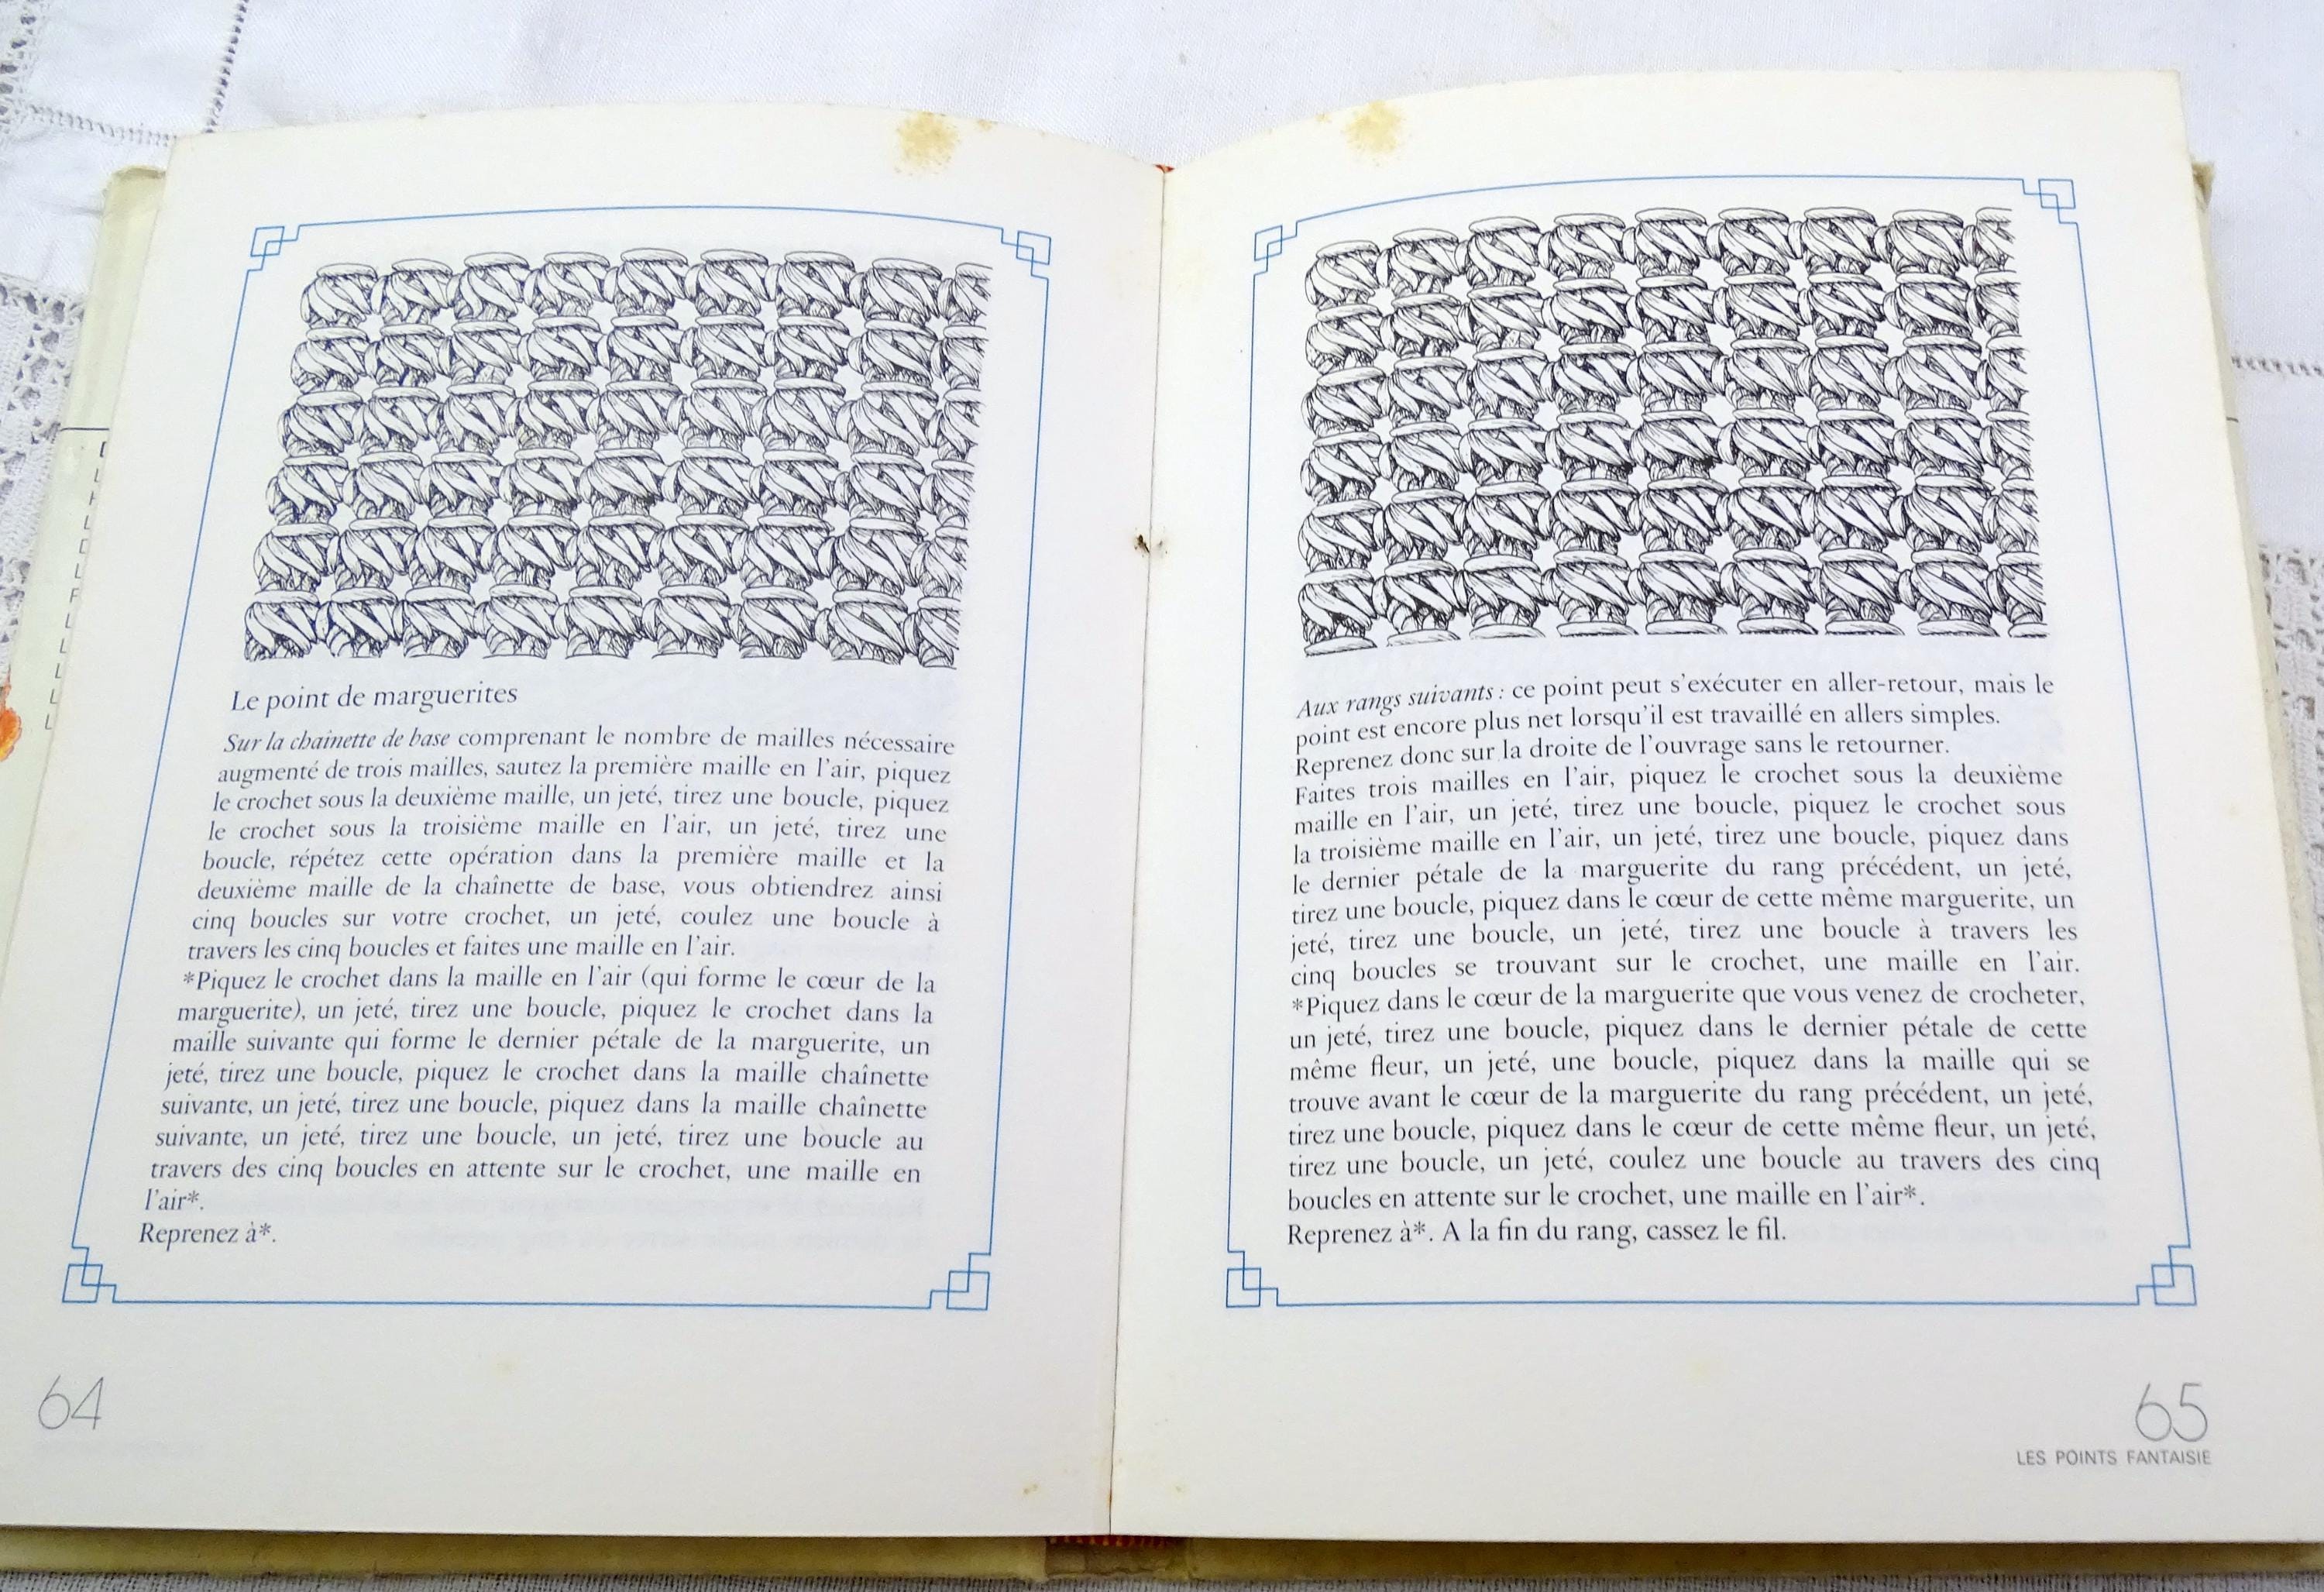 Le point de marguerites
Sur la chaînette de base comprenant le nombre de mailles nécessaire
augmenté de trois mailles, sautez la première maille en l'air, piquez
le crochet sous la deuxième maille, un jeté, tirez une boucle, piquez
le crochet sous la troisième maille en l'air, un jeté, tirez une
boucle, répétez cette opération dans la première maille et la
deuxième maille de la chaînette de base, vous obtiendrez ainsi
cinq boucles sur votre crochet, un jeté, coulez une boucle à
travers les cinq boucles et faites une maille en l'air.
*Piquez le crochet dans la maille en l'air (qui forme le cœur de la
marguerite), un jeté, tirez une boucle, piquez le crochet dans la
maille suivante qui forme le dernier pétale de la marguerite, un
jeté, tirez une boucle, piquez le crochet dans la maille chaînette
suivante, un jeté, tirez une boucle, piquez dans la maille chaînette
suivante, un jeté, tirez une boucle, un jeté, tirez une boucle au
travers des cinq boucles en attente sur le crochet, une maille en
l'air*.
Reprenez à*.
64
Aux rangs suivants : ce point peut s'exécuter en aller-retour, mais le
point est encore plus net lorsqu'il est travaillé en allers simples.
Reprenez donc sur la droite de l'ouvrage sans le retourner.
Faites trois mailles en l'air, piquez le crochet sous la deuxième
maille en l'air, un jeté, tirez une boucle, piquez le crochet sous
la troisième maille en l'air, un jeté, tirez une boucle, piquez dans
le dernier pétale de la marguerite du rang précédent, un jeté,
tirez une boucle, piquez dans le cœur de cette même marguerite, un
jeté, tirez une boucle, un jeté, tirez une boucle à travers les
cinq boucles se trouvant sur le crochet, une maille en l'air.
*Piquez dans le cœur de la marguerite que vous venez de crocheter,
un jeté, tirez une boucle, piquez dans le dernier pétale de cette
même fleur, un jeté, une boucle, piquez dans la maille qui se
trouve avant le cœur de la marguerite du rang précédent, un jeté,
tirez une boucle, piquez dans le cœur de cette même fleur, un jeté,
tirez une boucle, un jeté, coulez une boucle au travers des cinq
boucles en attente sur le crochet, une maille en l'air*.
Reprenez à*. A la fin du rang, cassez le fil.
65
LES POINTS FANTAISIE